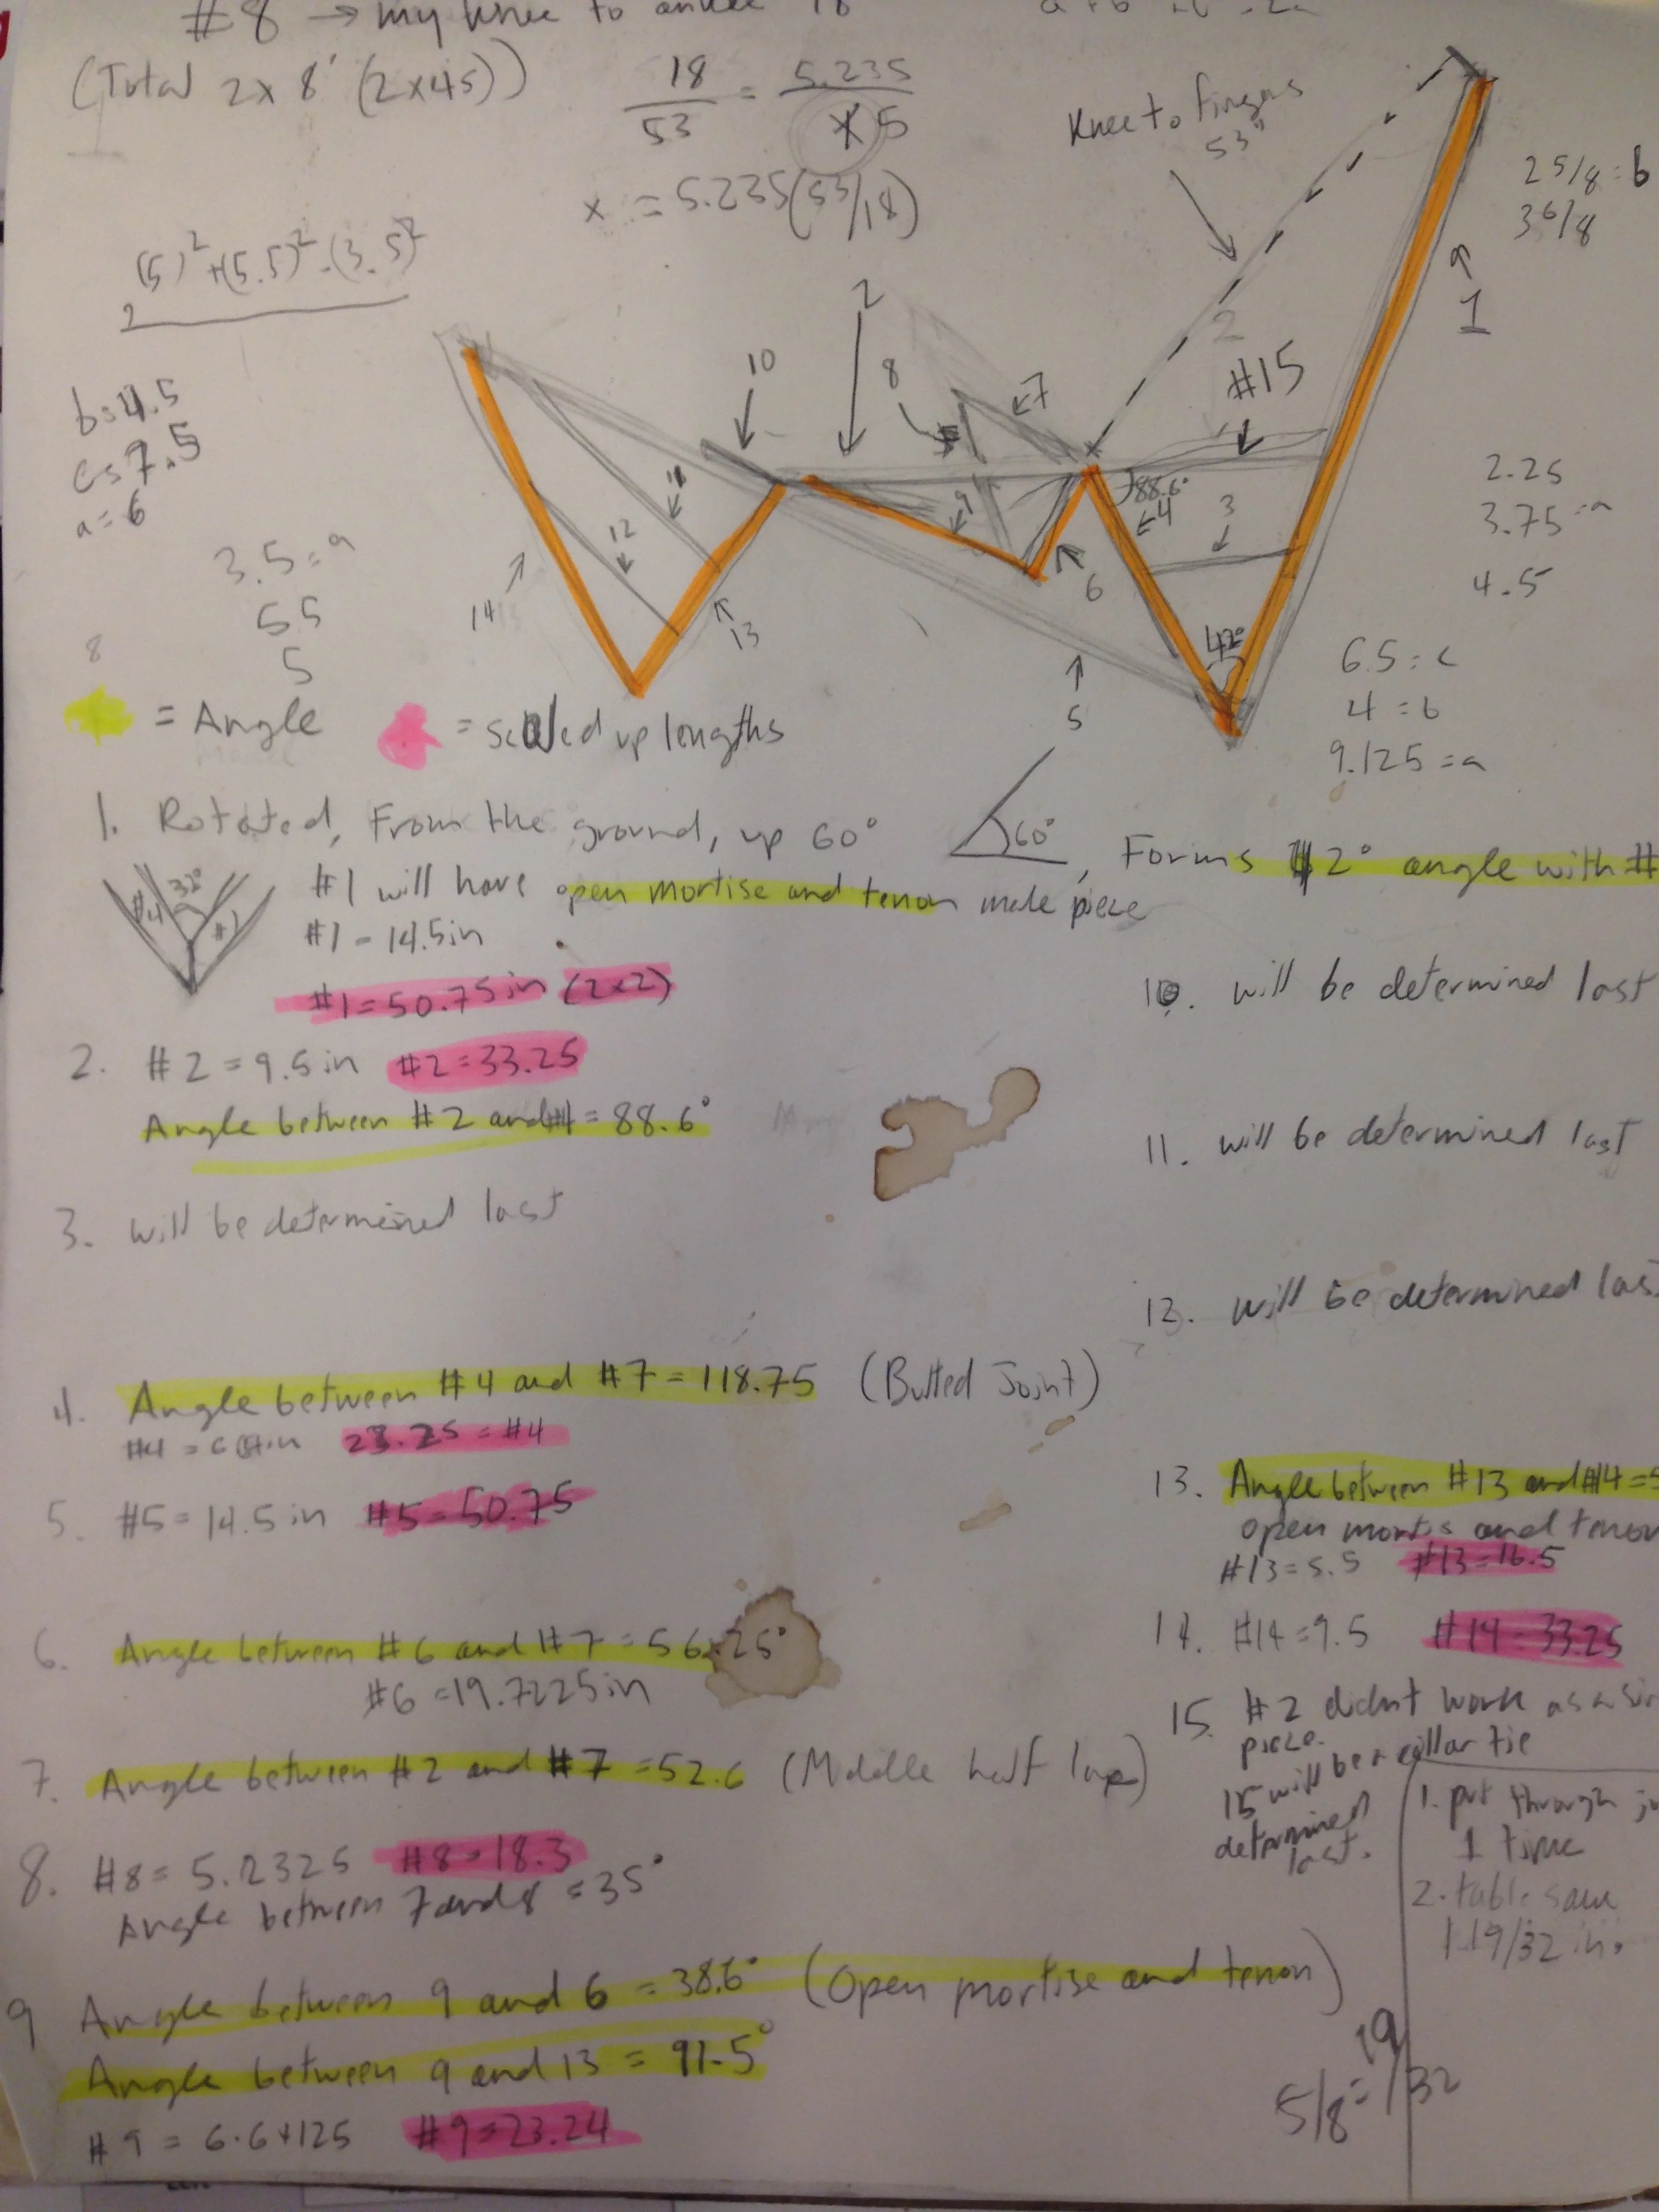 #8 → my knee to ankle 18
(Total 2x8' (2x45))
18/53 = 5.235/X5
x = 5.235(53/18)
Knee to fingers
53"
2 5/8 = b
3 6/8
1
(5)² + (5.5)² - (3.5)²
2
b = 4.5
c = 7.5
a = 6
3.5 = a
5.5
5
8
2
10
8
7
2
#15
88.6°
4
3
9
11
12
6
14
13
42°
5
2.25
3.75 = a
4.5
6.5 = c
4 = b
9.125 = a
= Angle
= scaled up lengths
1. Rotated, From the ground, up 60°
60°
, Forms 2° angle with #
32°
#4
#1
#1 will have open mortise and tenon male piece
#1 = 14.5in
#1 = 50.75in (2x2)
2. #2 = 9.5in #2 = 33.25
Angle between #2 and #4 = 88.6°
3. will be determined last
4. Angle between #4 and #7 = 118.75 (Butted Joint)
23.25 = #4
5. #5 = 14.5in #5 = 50.75
6. Angle between #6 and #7 = 56.25°
#6 = 19.7225in
7. Angle between #2 and #7 = 52.6 (Middle half lap)
8. #8 = 5.2325 #8 = 18.3
Angle between 7 and 8 = 35°
9 Angle between 9 and 6 = 38.6° (Open mortise and tenon)
Angle between 9 and 13 = 91.5°
#9 = 6.64125 #9 = 23.24
10. will be determined last
11. will be determined last
12. will be determined las
13. Angle between #13 and #14 = 5
open mortis and tenon
#13 = 5.5 #13 = 16.5
14. #14 = 9.5 #14 = 33.25
15. #2 didnt work as a sin
piece.
15 will be a collar tie
determined
last.
1. put through
1 time
2. table saw
1 19/32 in.
5/8 = 19/32